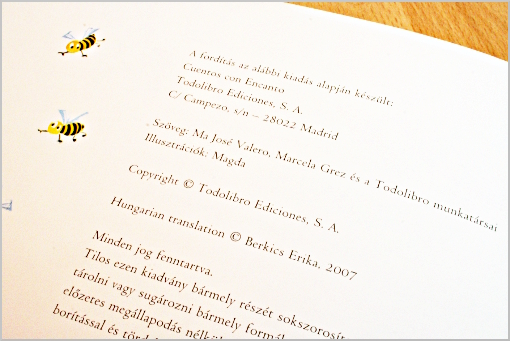 A fordítás az alábbi kiadás alapján készült:
Cuentos con Encanto
Todolibro Ediciones, S. A.
C/ Campezo, s/n – 28022 Madrid
Szöveg: Ma José Valero, Marcela Grez és a Todolibro munkatársai
Illusztrációk: Magda
Copyright © Todolibro Ediciones, S. A.
Hungarian translation © Berkics Erika, 2007
Minden jog fenntartva.
Tilos ezen kiadvány bármely részét
tárolni vagy sugározni bármely
előzetes megállapodás
borítással és